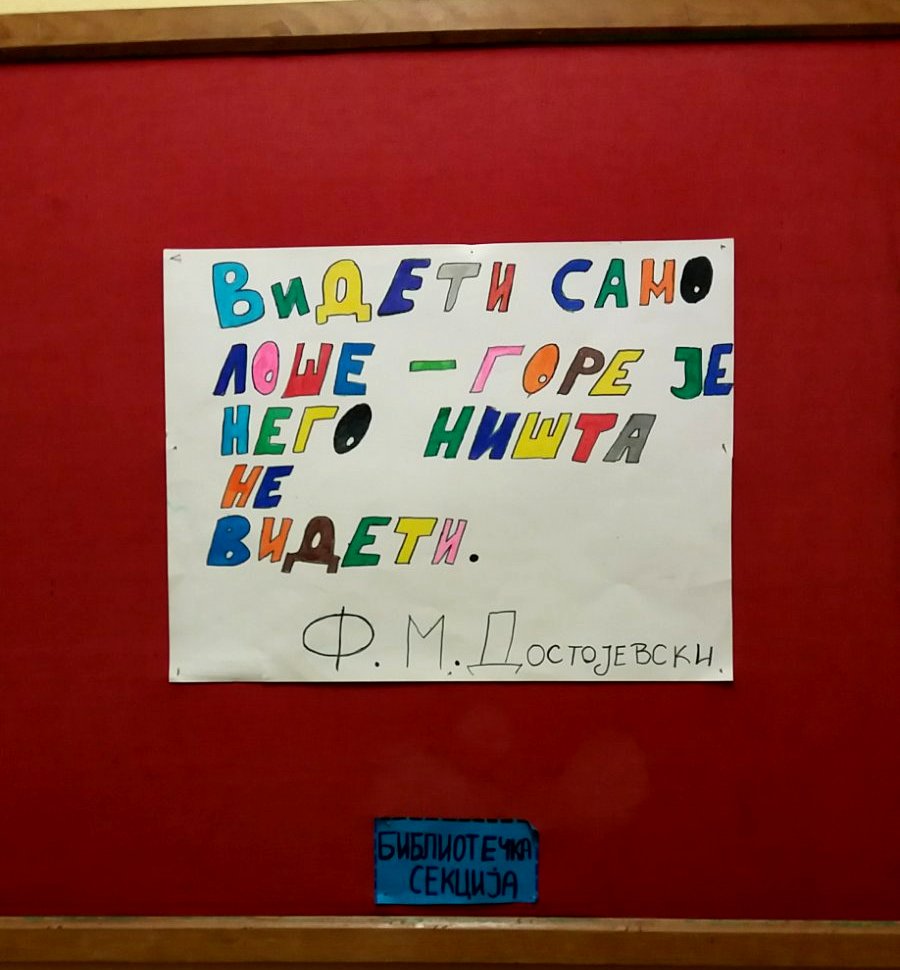 ВИДЕТИ САМО
ЛОШЕ - ГОРЕ ЈЕ
НЕГО НИШТА
НЕ
ВИДЕТИ.
Ф. М. ДОСТОЈЕВСКИ
БИБЛИОТЕЧКА
СЕКЦИЈА